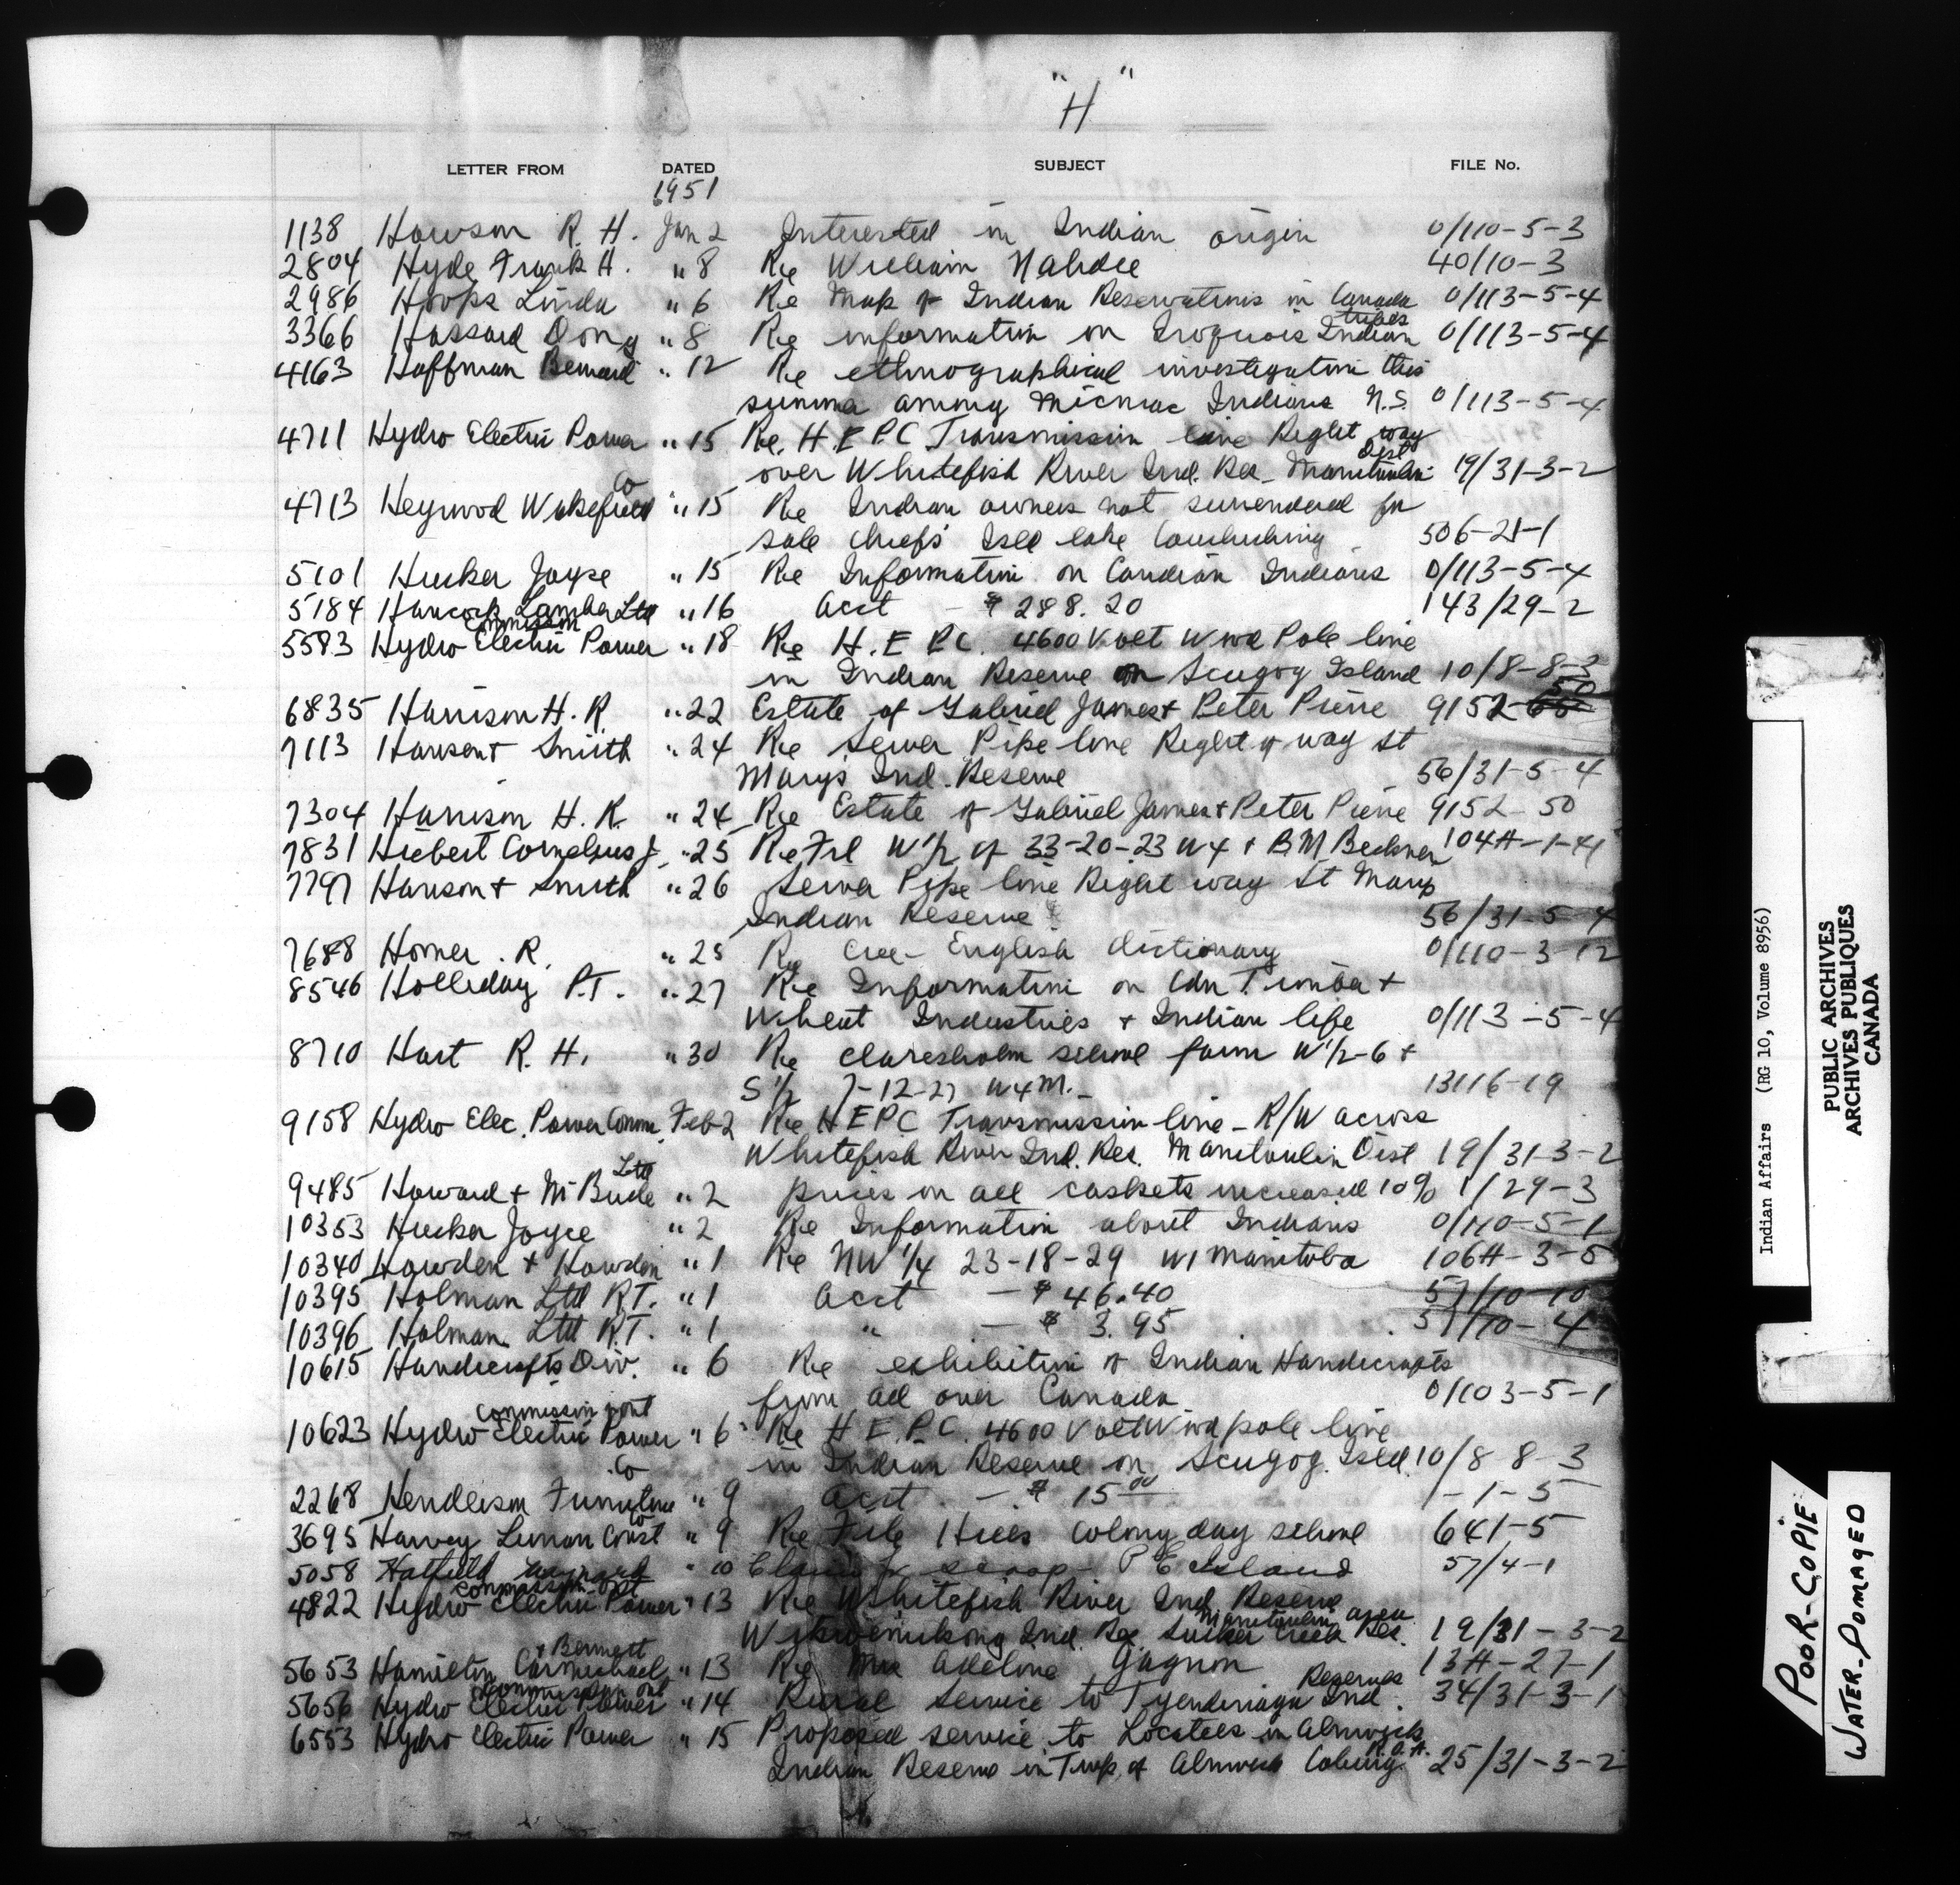 "H"
LETTER FROM DATED SUBJECT FILE No.
1951
1138 Howson R. H. Jan 2 Interested in Indian origin 0/110-5-3
2804 Hyde Frank H. " 8 Re William Nahdee 40/10-3
2986 Hoops Linda " 6 Re Map of Indian Reservations in Canada 0/113-5-4
3366 Hassard Doug " 8 Re information on Iroquois Indian tribes 0/113-5-4
4163 Hoffman Bernard " 12 Re ethnographical investigation this
summer among Micmac Indians N.S. 0/113-5-4
4711 Hydro Electric Power " 15 Re. H.E P.C Transmission line Right way
over Whitefish River Ind. Res - Manitoulin Dist 19/31-3-2
4713 Heywood Wakefield Co " 15 Re Indian owners not surrendered for
sale Chiefs Isld lake Couchiching 506-21-1
5101 Hucker Joyce " 15 Re Information on Candian Indians 0/113-5-4
5184 Hancock Lumber Ltd " 16 Acct - $ 288.20 143/29-2
5583 Hydro Electric Power Commission " 18 Re H.E P.C. 4600 Volt Wwd Pole line
in Indian Reserve on Scugog Island 10/8-8-3
6835 Harrison H. R. " 22 Estate of Gabriel James + Peter Pierre 9152-50
7113 Hanson + Smith " 24 Re Sewer Pipe line Right of way St
Mary's Ind. Reserve 56/31-5-4
7304 Harrison H. R. " 24 Re Estate of Gabriel James + Peter Pierre 9152-50
7831 Hiebert Cornelius J. " 25 Re Frl W 1/2 of 33-20-23 W4 + B.M 104H-1-41
7797 Hanson + Smith " 26 Sewer Pipe line Right way St Marys
Indian Reserve 56/31-5-4
7688 Homer. R. " 25 Re Cree-English dictionary 0/110-3-12
8546 Holliday P.T. " 27 Re Information on Cdn Timber +
Wheat Industries + Indian life 0/113-5-4
8710 Hart R. H. " 30 Re Claresholm school farm W 1/2-6 +
S 1/2 7-12-27 W4M. 13116-19
9158 Hydro Elec. Power Comm. Feb 2 Re H E P C Transmission line - R/W across
Whitefish River Ind. Res. Manitoulin Dist 19/31-3-2
9485 Howard + McBride Ltd " 2 prices on all caskets increased 10% 1/29-3
10353 Hucker Joyce " 2 Re Information about Indians 0/110-5-1
10340 Howden + Howden " 1 Re NW 1/4 23-18-29 W1 Manitoba 106H-3-5
10395 Holman Ltd R.T. " 1 Acct - $ 46.40 57/10-10
10396 Holman Ltd R.T. " 1 " - $ 3.95 57/10-4
10615 Handicrafts Div. " 6 Re exhibition of Indian Handicrafts
from all over Canada 0/103-5-1
10623 Hydro Electric Power Commission ont " 6 Re H E.P.C. 4600 Volt Wwd pole line
in Indian Reserve on Scugog. Isld. 10/8-8-3
2268 Henderson Furniture Co " 9 Acct. - $ 15 00 1-1-5
3695 Harvey Lunan Const Co " 9 Re File Hills Colony day school 641-5
5058 Hatfield " 10 P E Island 57/4-1
4822 Hydro Electric Power Commission ont " 13 Re Whitefish River Ind. Reserve
Wikwemikong Ind. Res Sucker Creek Res. Manitoulin area 19/31-3-2
5653 Hamilton Carmichael + Bennett " 13 Re Mrs Adeline Gagnon 13H-27-1
5656 Hydro Electric Power Commission ont " 14 Rural Service to Tyendinaga Ind. Reserves 34/31-3-1
6553 Hydro Electric Power " 15 Proposed service to Locatees in Alnwick
Indian Reserve in Twp. of Alnwick Cobourg 25/31-3-2
Indian Affairs (RG 10, Volume 8956)
PUBLIC ARCHIVES
ARCHIVES PUBLIQUES
CANADA
POOR-COPIE
WATER-DOMAGED